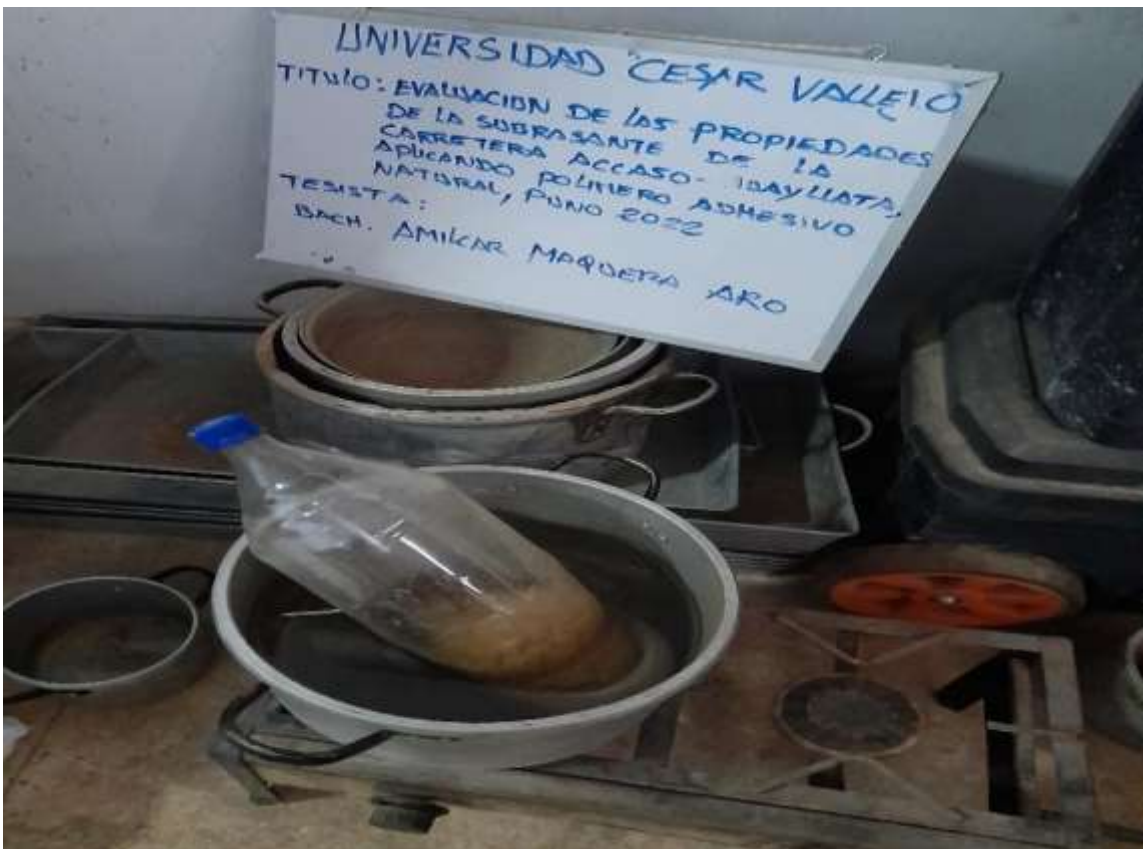 UNIVERSIDAD "CESAR VALLEJO
TITULO: EVALUACION DE LAS PROPIEDADES
DE LA SUBRASANTE DE LA
CARRETERA ACCASO- IDAYLLATA,
APLICANDO POLIMERO ADHESIVO
NATURAL, PUNO 2022
TESISTA:
BACH. AMILCAR MAQUERA ARO